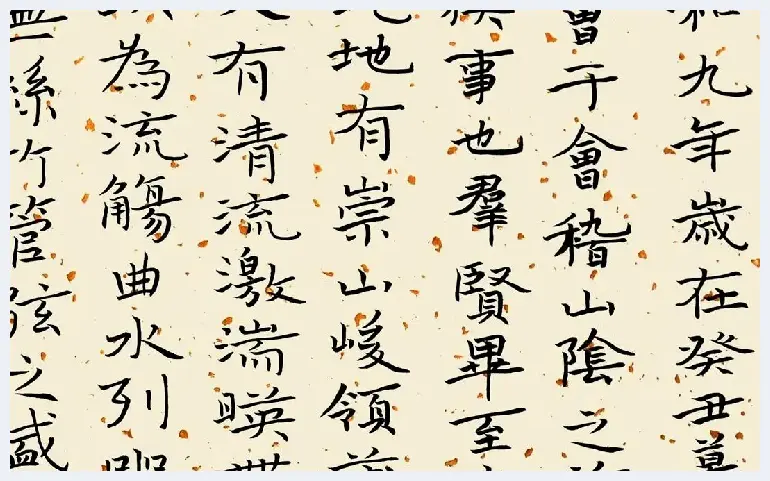 和九年歲在癸丑暮
會于會稽山陰之
稧事也羣賢畢至
地有崇山峻領
有清流激湍暎帶
以為流觴曲水列
絲竹管弦之盛